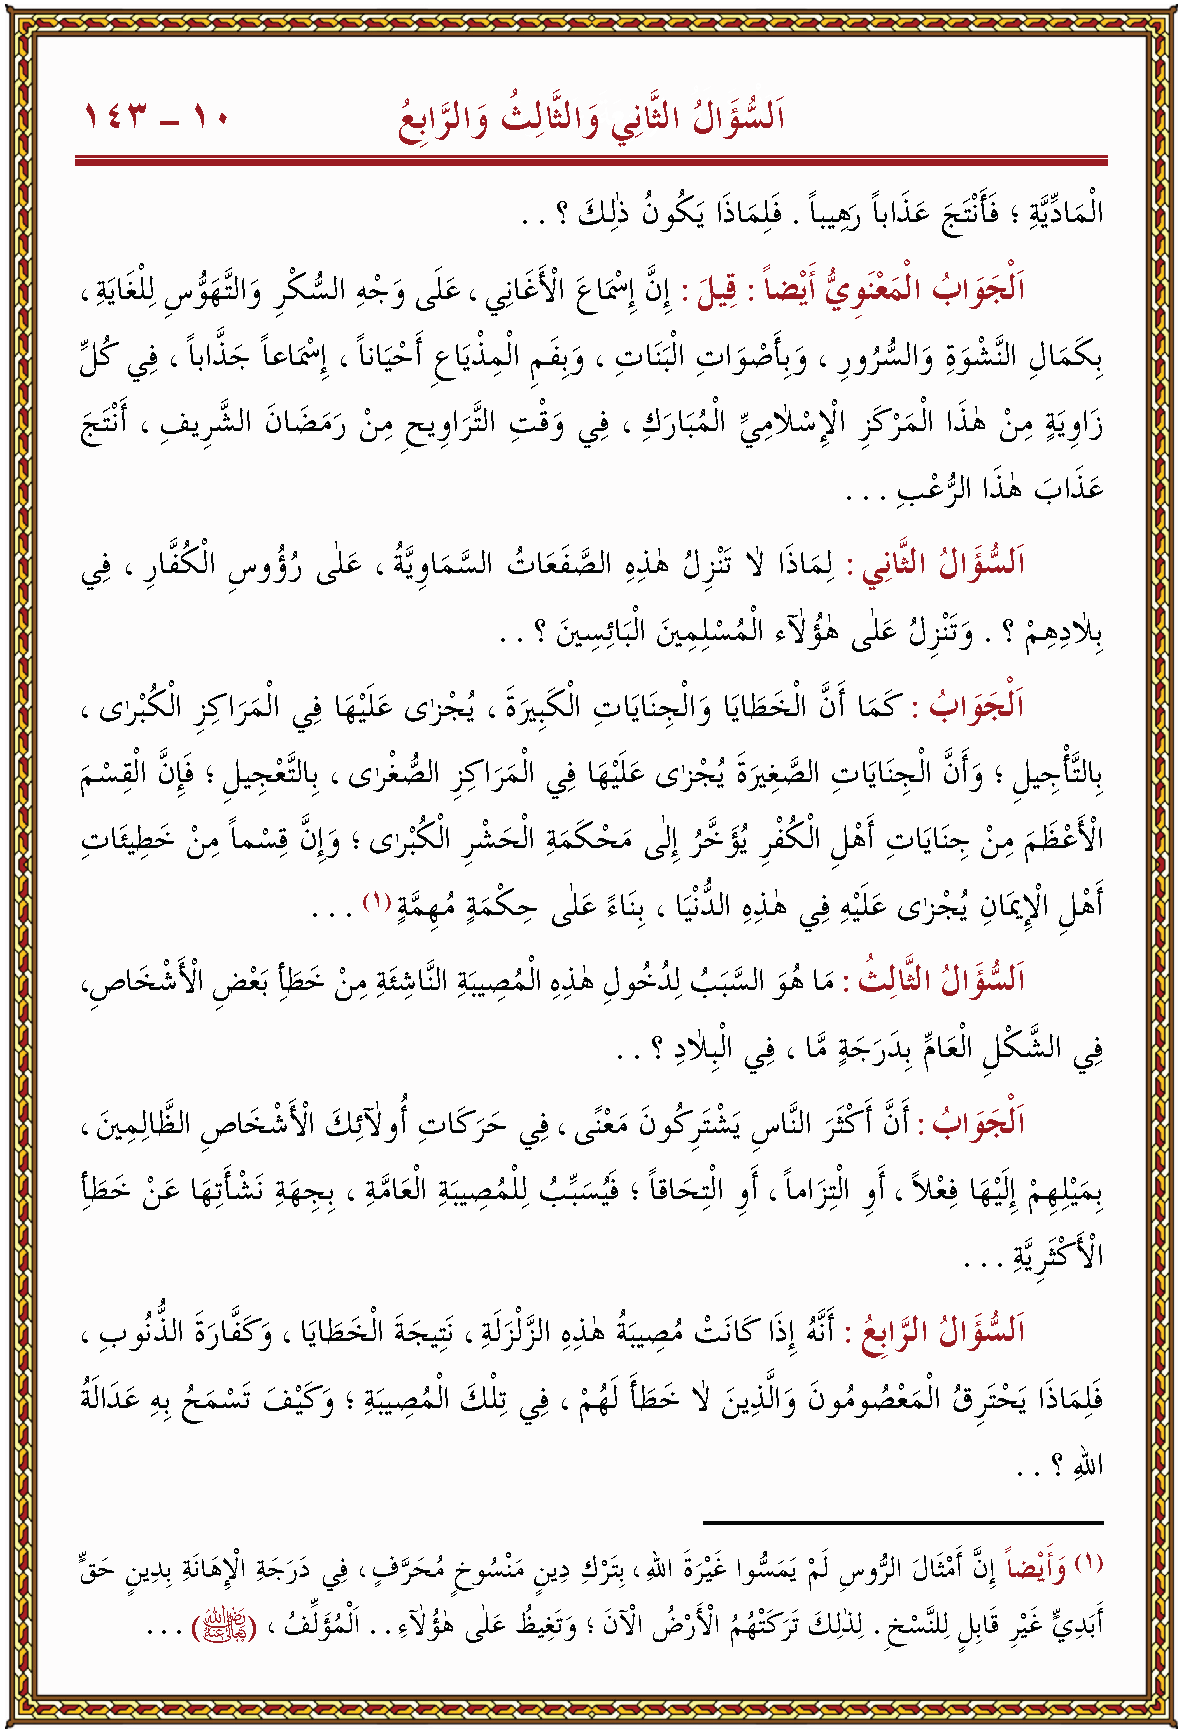 اَلسُّؤَالُ الثَّانِي وَالثَّالِثُ وَالرَّابِعُ ١٠ – ١٤٣
الْمَادِّيَّةِ ؛ فَأَنْتَجَ عَذَاباً رَهِيباً . فَلِمَاذَا يَكُونُ ذٰلِكَ ؟ . .
اَلْجَوَابُ الْمَعْنَوِيُّ أَيْضاً : قِيلَ : إِنَّ إِسْمَاعَ الْأَغَانِي ، عَلَى وَجْهِ السُّكْرِ وَالتَّهَوُّسِ لِلْغَايَةِ ،
بِكَمَالِ النَّشْوَةِ وَالسُّرُورِ ، وَبِأَصْوَاتِ الْبَنَاتِ ، وَبِفَمِ الْمِذْيَاعِ أَحْيَاناً ، إِسْمَاعاً جَذَّاباً ، فِي كُلِّ
زَاوِيَةٍ مِنْ هٰذَا الْمَرْكَزِ الْإِسْلَامِيِّ الْمُبَارَكِ ، فِي وَقْتِ التَّرَاوِيحِ مِنْ رَمَضَانَ الشَّرِيفِ ، أَنْتَجَ
عَذَابَ هٰذَا الرُّعْبِ . . .
اَلسُّؤَالُ الثَّانِي : لِمَاذَا لَا تَنْزِلُ هٰذِهِ الصَّفَعَاتُ السَّمَاوِيَّةُ ، عَلٰى رُؤُوسِ الْكُفَّارِ ، فِي
بِلَادِهِمْ ؟ . وَتَنْزِلُ عَلٰى هٰؤُلَآءِ الْمُسْلِمِينَ الْبَائِسِينَ ؟ . .
اَلْجَوَابُ : كَمَا أَنَّ الْخَطَايَا وَالْجِنَايَاتِ الْكَبِيرَةَ ، يُجْزٰى عَلَيْهَا فِي الْمَرَاكِزِ الْكُبْرٰى ،
بِالتَّأْجِيلِ ؛ وَأَنَّ الْجِنَايَاتِ الصَّغِيرَةَ يُجْزٰى عَلَيْهَا فِي الْمَرَاكِزِ الصُّغْرٰى ، بِالتَّعْجِيلِ ؛ فَإِنَّ الْقِسْمَ
الْأَعْظَمَ مِنْ جِنَايَاتِ أَهْلِ الْكُفْرِ يُؤَخَّرُ إِلٰى مَحْكَمَةِ الْحَشْرِ الْكُبْرٰى ؛ وَإِنَّ قِسْماً مِنْ خَطِيئَاتِ
أَهْلِ الْإِيمَانِ يُجْزٰى عَلَيْهِ فِي هٰذِهِ الدُّنْيَا ، بِنَاءً عَلٰى حِكْمَةٍ مُهِمَّةٍ (١) . . .
اَلسُّؤَالُ الثَّالِثُ : مَا هُوَ السَّبَبُ لِدُخُولِ هٰذِهِ الْمُصِيبَةِ النَّاشِئَةِ مِنْ خَطَأِ بَعْضِ الْأَشْخَاصِ،
فِي الشَّكْلِ الْعَامِّ بِدَرَجَةٍ مَّا ، فِي الْبِلَادِ ؟ . .
اَلْجَوَابُ : أَنَّ أَكْثَرَ النَّاسِ يَشْتَرِكُونَ مَعْنًى ، فِي حَرَكَاتِ أُولَآئِكَ الْأَشْخَاصِ الظَّالِمِينَ ،
بِمَيْلِهِمْ إِلَيْهَا فِعْلاً ، أَوِ الْتِزَاماً ، أَوِ الْتِحَاقاً ؛ فَيُسَبِّبُ لِلْمُصِيبَةِ الْعَامَّةِ ، بِجِهَةِ نَشْأَتِهَا عَنْ خَطَأِ
الْأَكْثَرِيَّةِ . . .
اَلسُّؤَالُ الرَّابِعُ : أَنَّهُ إِذَا كَانَتْ مُصِيبَةُ هٰذِهِ الزَّلْزَلَةِ ، نَتِيجَةَ الْخَطَايَا ، وَكَفَّارَةَ الذُّنُوبِ ،
فَلِمَاذَا يَحْتَرِقُ الْمَعْصُومُونَ وَالَّذِينَ لَا خَطَأَ لَهُمْ ، فِي تِلْكَ الْمُصِيبَةِ ؛ وَكَيْفَ تَسْمَحُ بِهِ عَدَالَةُ
اللهِ ؟ . .
(١) وَأَيْضاً إِنَّ أَمْثَالَ الرُّوسِ لَمْ يَمَسُّوا غَيْرَةَ اللهِ ، بِتَرْكِ دِينٍ مَنْسُوخٍ مُحَرَّفٍ ، فِي دَرَجَةِ الْإِهَانَةِ بِدِينٍ حَقٍّ
أَبَدِيٍّ غَيْرِ قَابِلٍ لِلنَّسْخِ . لِذٰلِكَ تَرَكَتْهُمُ الْأَرْضُ الْآنَ ؛ وَتَغِيظُ عَلٰى هٰؤُلَآءِ . . اَلْمُؤَلِّفُ ، (رضي الله تعالى عنه) . . .